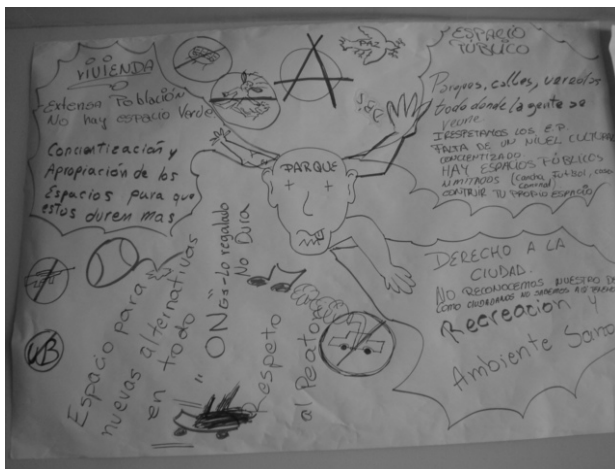 VIVIENDA
Extensa Población
No hay espacio Verde
Concientización y
Apropiación de los
Espacios para que
estos duren mas
A
PAZ
ESPACIO
PÚBLICO
Parques, calles, veredas
todo donde la gente se
reune
IRESPETAMOS LOS E.P.
FALTA DE UN NIVEL CULTURAL
CONCIENTIZADO
HAY ESPACIOS PÚBLICOS
LIMITADOS (Cancha, Futbol, casa
comunal)
CONTRUIR TU PROPIO ESPACIO
PARQUE
DERECHO A LA
CIUDAD.
NO RECONOCEMOS NUESTRO
COMO CIUDADANOS NO SABEMOS
Recreación y
Ambiente Sano
Espacio para
nuevas alternativas
en todo
"ONGs-Lo regalado
No Dura
Respeto
al Peaton